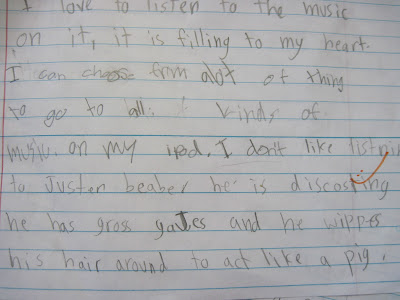 I love to listen to the music
on it, it is filling to my heart.
I can choose from alot of thing
to go to all. kinds of
music. on my ipod. I don't like listnin
to Justen beaber he is discosting
he has gross gates and he wippes
his hair around to act like a pig.